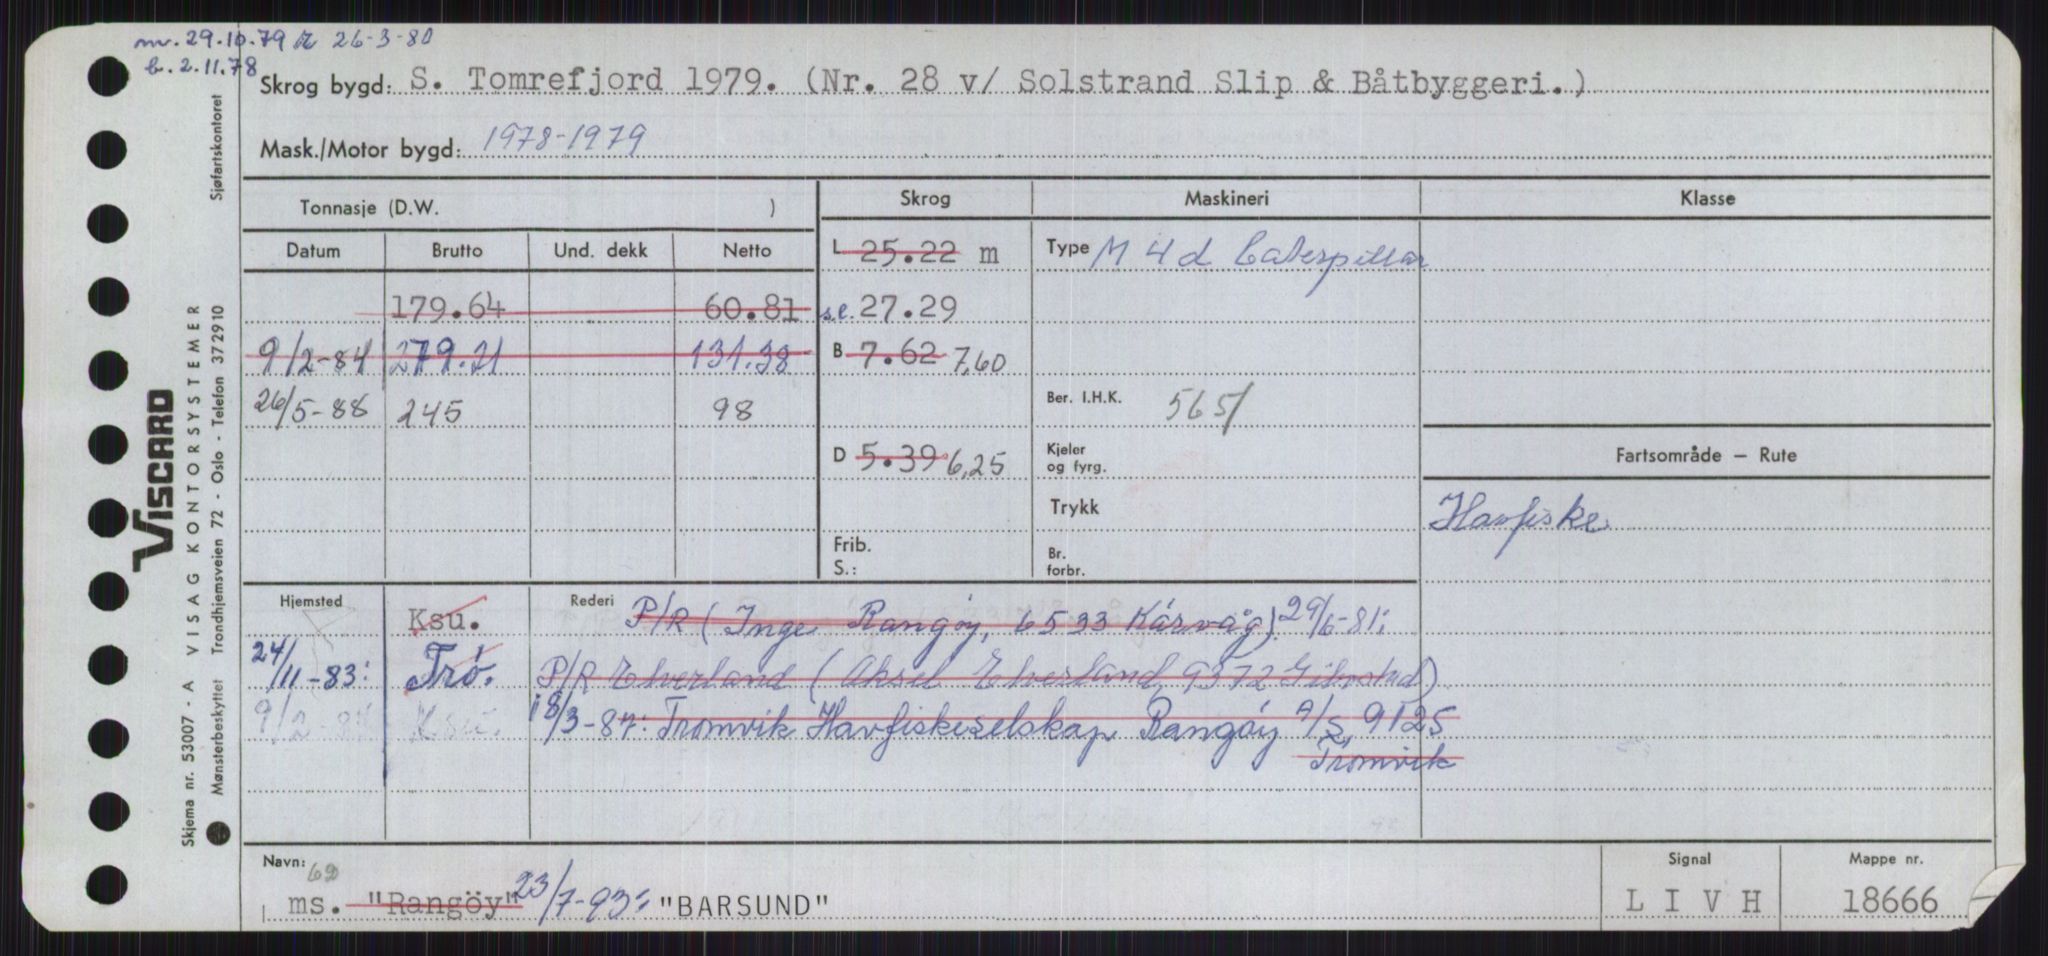 nv. 29.10.79 26-3-80
b. 2.11.78
Skrog bygd: S. Tomrefjord 1979. (Nr. 28 v/ Solstrand Slip & Båtbyggeri.)
Mask./Motor bygd: 1978-1979
Tonnasje (D.W. )
Skrog Maskineri Klasse
Datum Brutto Und. dekk Netto
L 25.22 m
Type M 4 d Caterpillar
179.64 60.81
s.l. 27.29
9/2-84 279.21 131.38
B 7.62 7,60
26/5-88 245 98
Ber. I.H.K. 565/
D 5.39 6,25
Kjeler
og fyrg.
Fartsområde – Rute
Trykk
Havfiske
Frib.
S.:
Br.
forbr.
Hjemsted Ksu. Rederi P/R (Inge Rangöy, 6533 Kårvåg). 29/6-81:
24/11-83: Trö. P/R Elverland (Aksel Elverland, 9372 Gibostad)
9/2-84 Ksu. 18/3-87: Tromvik Havfiskeselskap Rangöy A/S, 9125
Tromvik
Navn: Signal Mappe nr.
ms. "Rangöy" 23/7-93: "BARSUND" L I V H 18666
Sjøfartskontoret
VISCARD
VISAG KONTORSYSTEMER
Trondhjemsveien 72 - Oslo - Telefon 372910
Skjema nr. 53007 - A
Mønsterbeskyttet